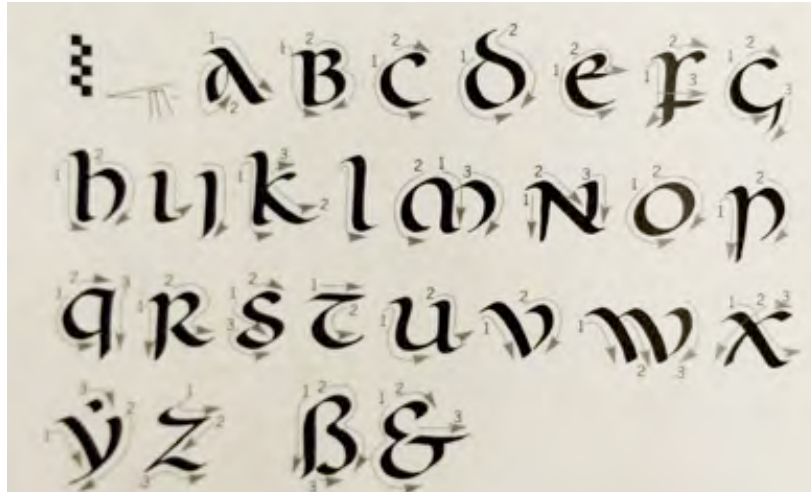 a B c d e f g
h i j k l m n o p
q r s t u v w x
ÿ z ß &